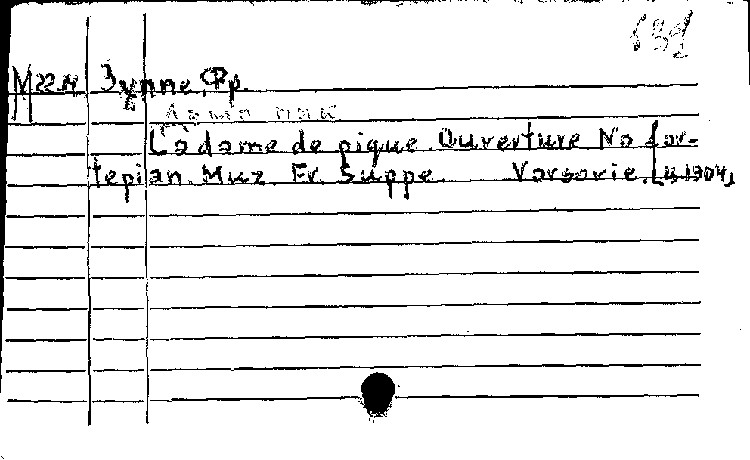 631
M 22.14 Зуппе, Фр.
Дама пик
La dame de pique. Ouverture. Na for-
tepian. Muz. Fr. Suppe. Varsovie. [4,1904]